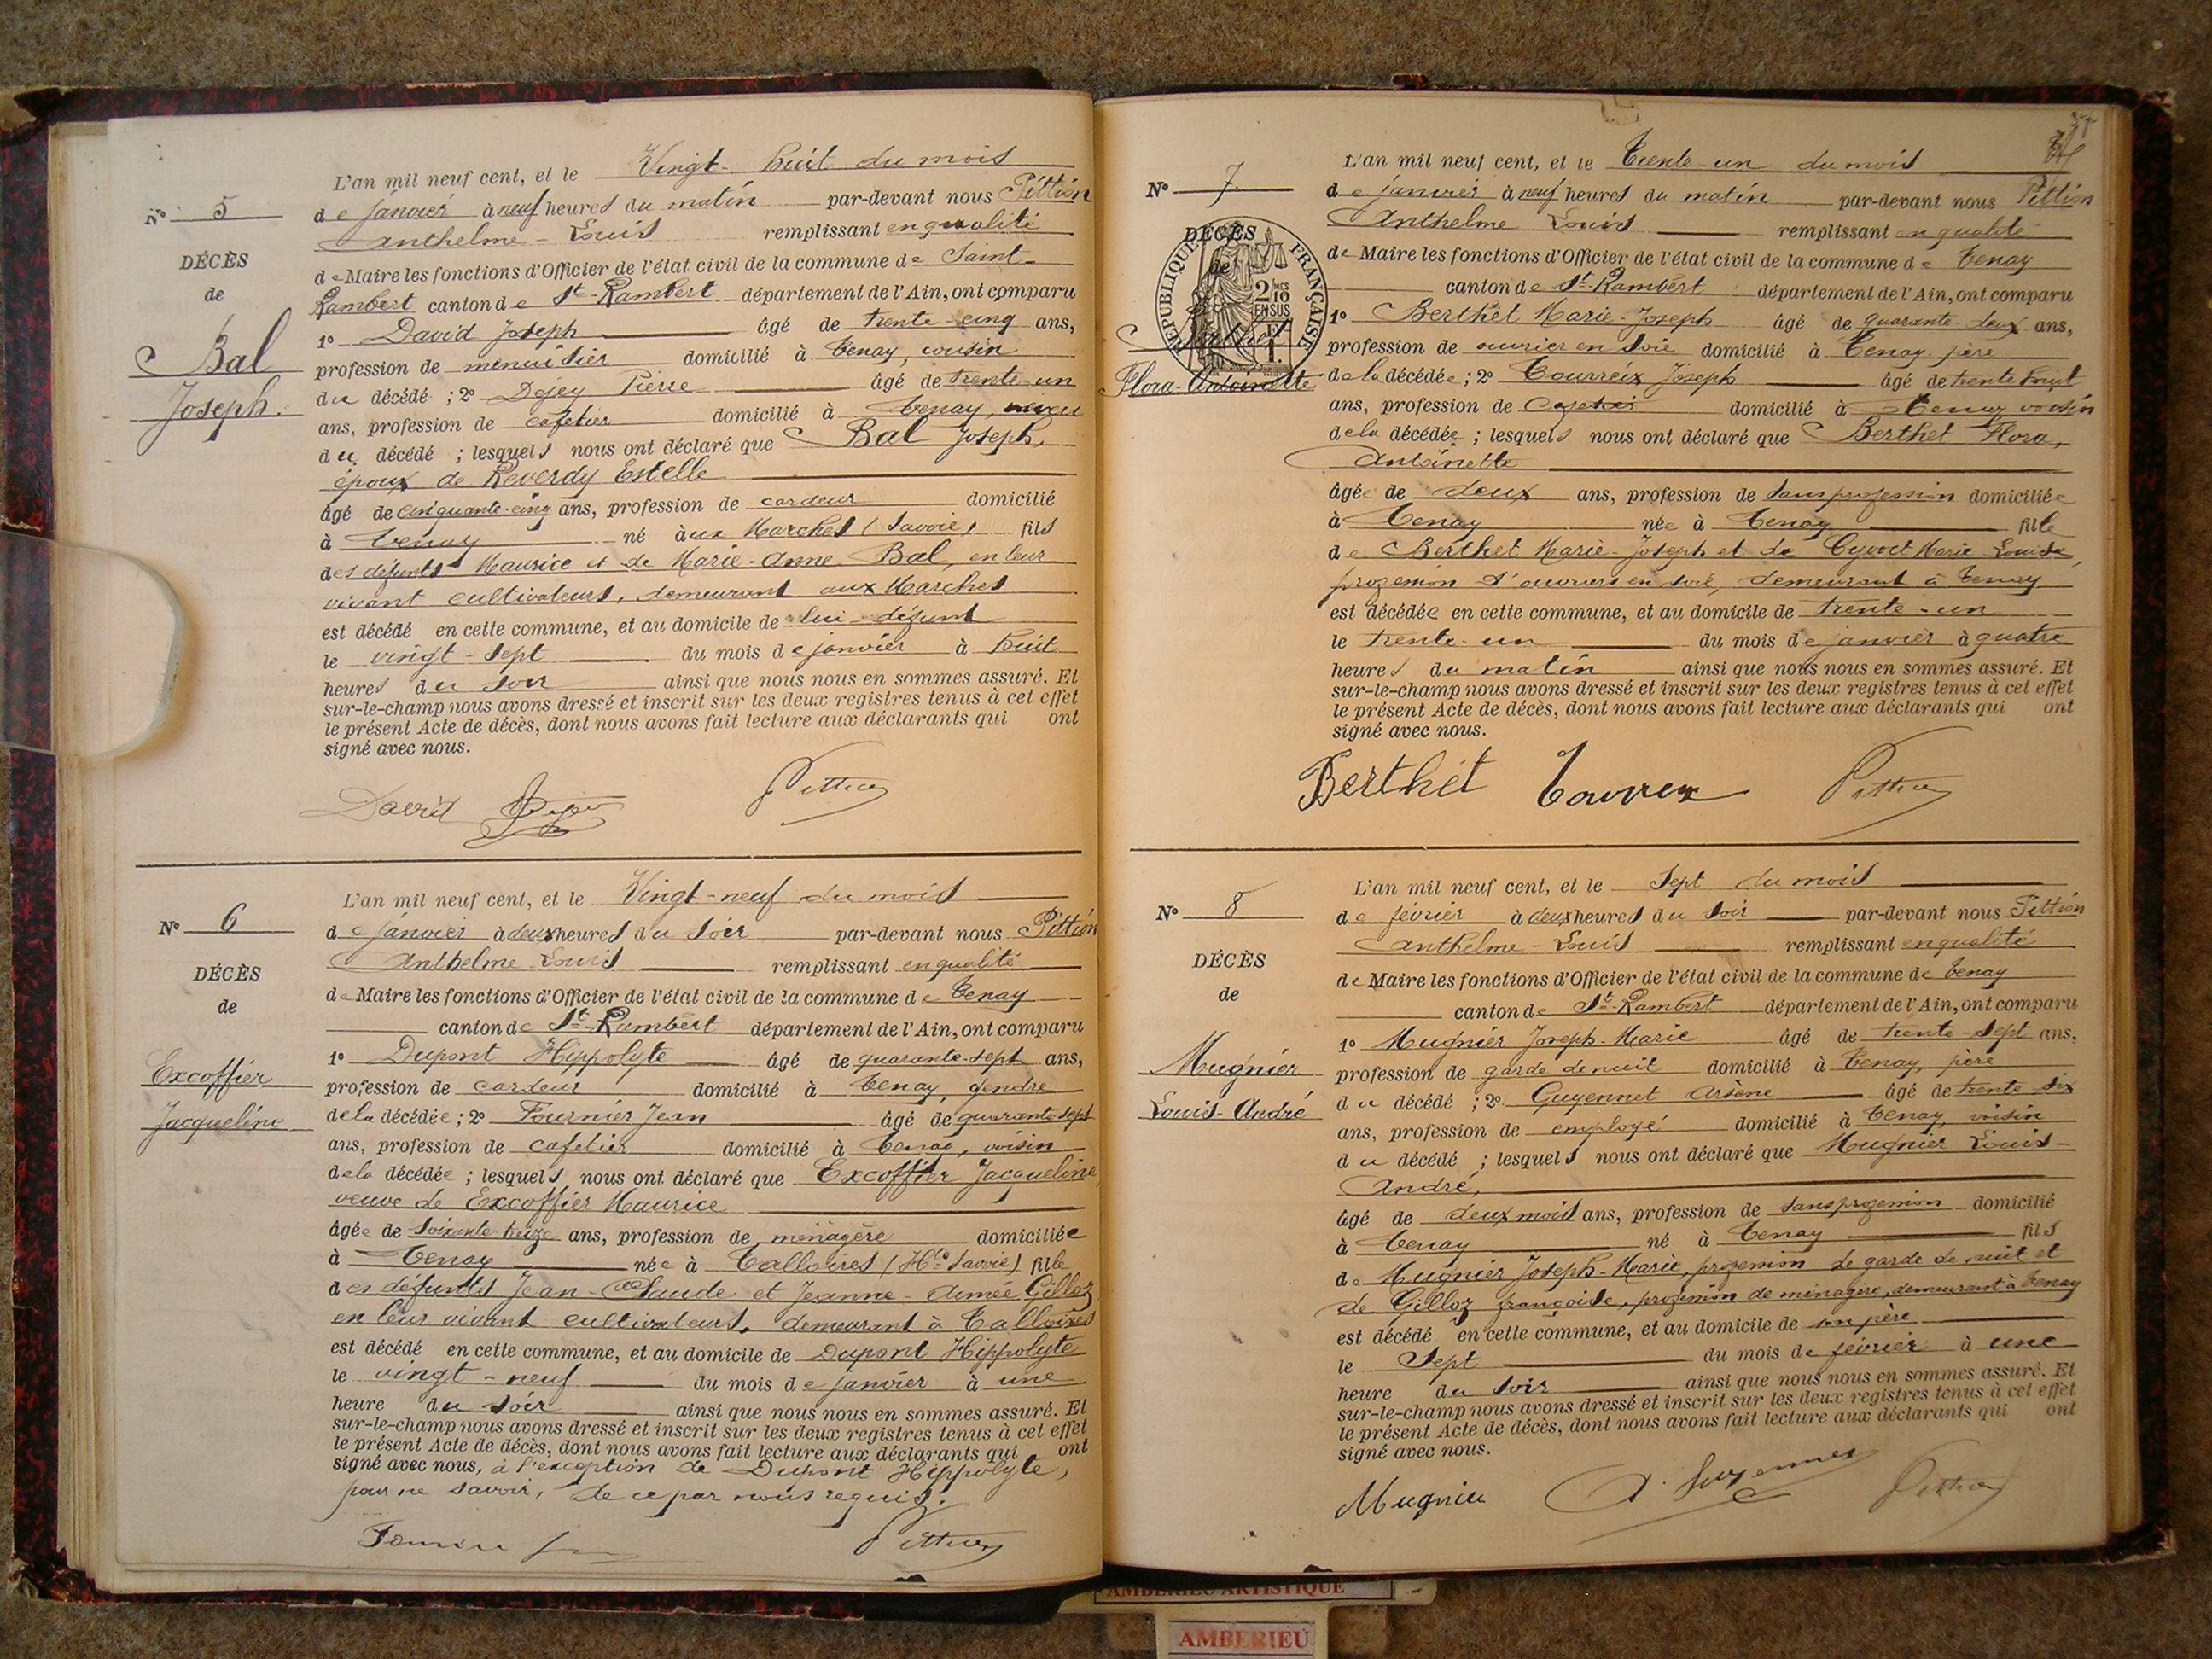 N° 5
DÉCÈS
de
Bal
Joseph.
L'an mil neuf cent, et le Vingt-huit du mois
de janvier à neuf heures du matin par-devant nous Pittion
Anthelme-Louis remplissant en qualité
de Maire les fonctions d'Officier de l'état civil de la commune de Saint-
Rambert canton de St-Rambert département de l'Ain, ont comparu
1° David Joseph âgé de trente-cinq ans,
profession de menuisier domicilié à Tenay, cousin
du décédé ; 2° Dejey Pierre âgé de trente-un
ans, profession de cafetier domicilié à Tenay, neveu
du décédé ; lesquels nous ont déclaré que Bal Joseph,
époux de Reverdy Estelle
âgé de cinquante-cinq ans, profession de cardeur domicilié
à Tenay né aux Marches (Savoie) fils
des défunts Maurice et de Marie-Anne Bal, en leur
vivant cultivateurs, demeurant aux Marches
est décédé en cette commune, et au domicile de lui-défunt
le vingt-sept du mois de janvier à huit
heures du soir ainsi que nous nous en sommes assuré. Et
sur-le-champ nous avons dressé et inscrit sur les deux registres tenus à cet effet
le présent Acte de décès, dont nous avons fait lecture aux déclarants qui ont
signé avec nous.
David Pittion
N° 6
DÉCÈS
de
Excoffier
Jacqueline
L'an mil neuf cent, et le Vingt-neuf du mois
de janvier à deux heures du soir par-devant nous Pittion
Anthelme Louis remplissant en qualité
de Maire les fonctions d'Officier de l'état civil de la commune de Tenay
canton de St-Rambert département de l'Ain, ont comparu
1° Dupont Hippolyte âgé de quarante-sept ans,
profession de cardeur domicilié à Tenay, gendre
de la décédée ; 2° Fournier Jean âgé de quarante sept
ans, profession de cafetier domicilié à Tenay, voisin
de la décédée ; lesquels nous ont déclaré que Excoffier Jacqueline
veuve de Excoffier Maurice
âgée de soixante treize ans, profession de ménagère domiciliée
à Tenay née à Talloires (Hte Savoie) fille
des défunts Jean-Claude et Jeanne-Aimée Gilloz
en leur vivant cultivateurs, demeurant à Talloires
est décédé en cette commune, et au domicile de Dupont Hippolyte
le vingt-neuf du mois de janvier à une
heure du soir ainsi que nous nous en sommes assuré. Et
sur-le-champ nous avons dressé et inscrit sur les deux registres tenus à cet effet
le présent Acte de décès, dont nous avons fait lecture aux déclarants qui ont
signé avec nous, à l'exception de Dupont Hippolyte,
pour ne savoir, de ce par nous requis.
Pittion
N° 7
DÉCÈS
de
Berthet
Flora-Antoinette
RÉPUBLIQUE FRANÇAISE
2/10 EN SUS
L'an mil neuf cent, et le Trente-un du mois
de janvier à neuf heures du matin par-devant nous Pittion
Anthelme Louis remplissant en qualité
de Maire les fonctions d'Officier de l'état civil de la commune de Tenay
canton de St-Rambert département de l'Ain, ont comparu
1° Berthet Marie-Joseph âgé de quarante-deux ans,
profession de ouvrier en soie domicilié à Tenay père
de la décédée ; 2° Tourreix Joseph âgé de trente huit
ans, profession de cafetier domicilié à Tenay voisin
de la décédée ; lesquels nous ont déclaré que Berthet Flora,
Antoinette
âgée de deux ans, profession de sans profession domiciliée
à Tenay née à Tenay fille
de Berthet Marie-Joseph et de Cyvoct Marie-Louise,
profession d'ouvriers en soie, demeurant à Tenay
est décédée en cette commune, et au domicile de trente-un
le trente-un du mois de janvier à quatre
heures du matin ainsi que nous nous en sommes assuré. Et
sur-le-champ nous avons dressé et inscrit sur les deux registres tenus à cet effet
le présent Acte de décès, dont nous avons fait lecture aux déclarants qui ont
signé avec nous.
Berthét Pittion
N° 8
DÉCÈS
de
Mugnier
Louis-André
L'an mil neuf cent, et le Sept du mois
de février à deux heures du soir par-devant nous Pittion
Anthelme-Louis remplissant en qualité
de Maire les fonctions d'Officier de l'état civil de la commune de Tenay
canton de St-Rambert département de l'Ain, ont comparu
1° Mugnier Joseph-Marie âgé de trente-sept ans,
profession de garde de nuit domicilié à Tenay, père
du décédé ; 2° Guyennet Arsène âgé de trente six
ans, profession de employé domicilié à Tenay, voisin
du décédé ; lesquels nous ont déclaré que Mugnier Louis-
André,
âgé de deux mois ans, profession de sans profession domicilié
à Tenay né à Tenay fils
de Mugnier Joseph-Marie, profession de garde de nuit et
de Gilloz françoise, profession de ménagère, demeurant à Tenay
est décédé en cette commune, et au domicile de son père
le Sept du mois de février à une
heure du soir ainsi que nous nous en sommes assuré. Et
sur-le-champ nous avons dressé et inscrit sur les deux registres tenus à cet effet
le présent Acte de décès, dont nous avons fait lecture aux déclarants qui ont
signé avec nous.
Mugnier A. Guyennet Pittion
AMBERIEU ARTISTIQUE
AMBERIEU